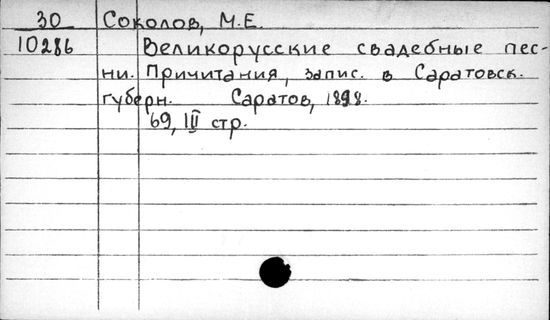 30 Соколов, М.Е.
10286 Великорусские свадебные пес-
ни. Причитания, запис. в Саратовск.
губерн. Саратов, 1898.
69, III стр.